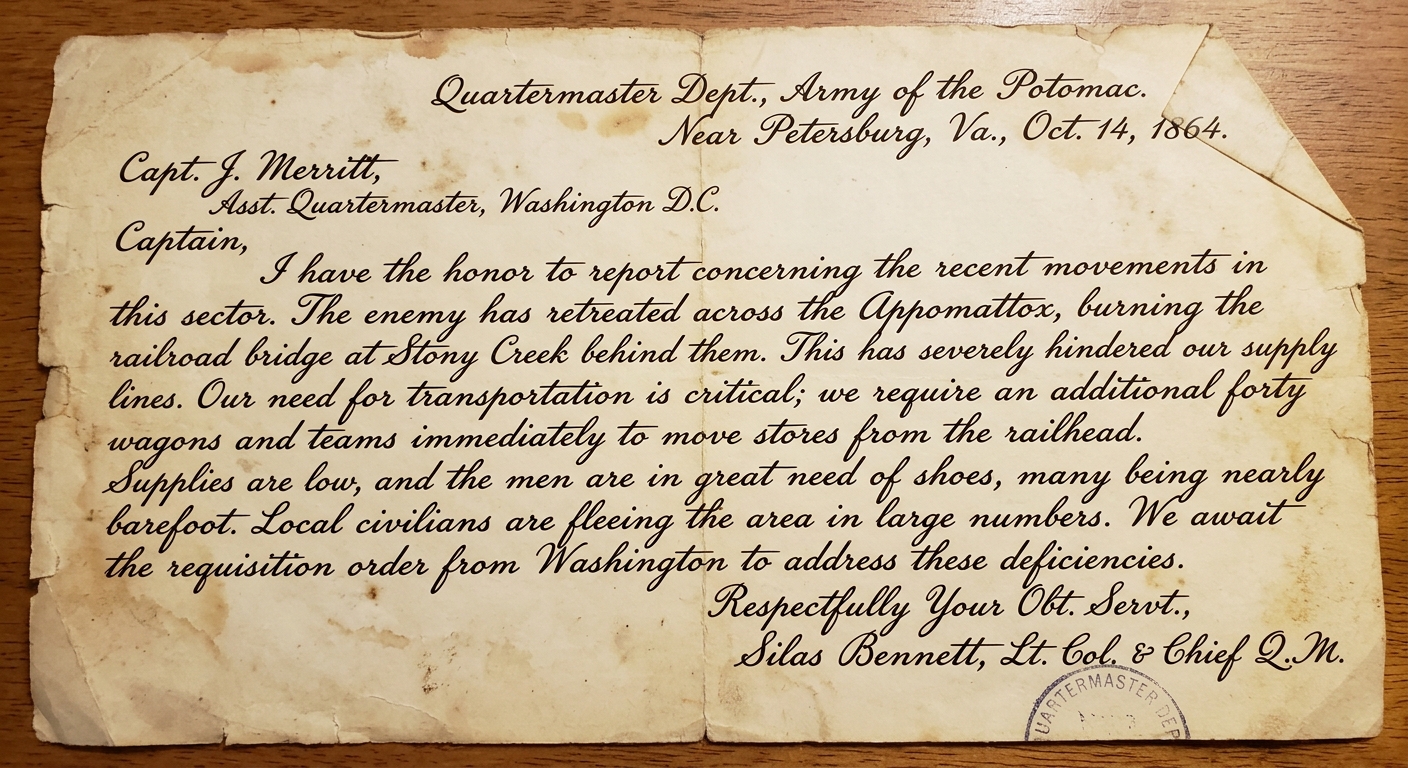 Quartermaster Dept., Army of the Potomac.
Near Petersburg, Va., Oct. 14, 1864.
Capt. J. Merritt,
Asst. Quartermaster, Washington D.C.
Captain,
I have the honor to report concerning the recent movements in
this sector. The enemy has retreated across the Appomattox, burning the
railroad bridge at Stony Creek behind them. This has severely hindered our supply
lines. Our need for transportation is critical; we require an additional forty
wagons and teams immediately to move stores from the railhead.
Supplies are low, and the men are in great need of shoes, many being nearly
barefoot. Local civilians are fleeing the area in large numbers. We await
the requisition order from Washington to address these deficiencies.
Respectfully Your Obt. Servt.,
Silas Bennett, Lt. Col. & Chief Q.M.
UARTERMASTER DEP